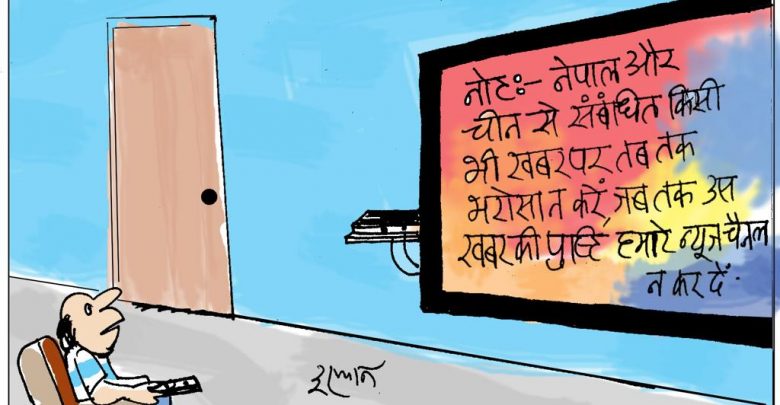 नोट:- नेपाल और
चीन से संबंधित किसी
भी खबर पर तब तक
भरोसा न करें, जब तक उस
खबर की पुष्टि, हमारे न्यूज चैनल
न कर दें.
इरफान